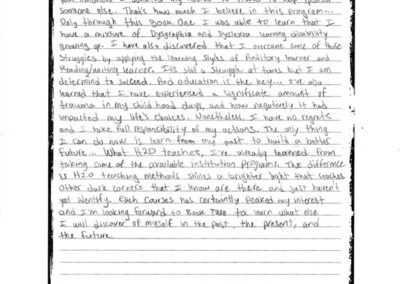 someone else. That's how much I believe in this program...
Only through this Book One I was able to learn that I
have a mixture of Dysgraphia and Dyslexia learning disability
growing up. I have also discovered that I overcame some of those
struggles by applying the learning styles of Auditory learner and
Reading/writing learner. It's still a struggle at times but I am
determined to succeed. And education is the key... I've also
learned that I have experienced a significant amount of
trauma in my child hood days, and how negatively it had
impacted my life's choices. Nonetheless, I have no regrets
and I take full responsibility of my actions. The only thing
I can do now is learn from my past to build a better
future... What H2O teaches, I've already learned from
taking some of the available institution programs. The difference
is H2O teaching methods shines a brighter light that reaches
other dark corners that I know are there and just haven't
yet identify. Each Courses has certainly peaked my interest
and I'm looking forward to Book Two to learn what else
I will discover of myself in the past, the present, and
the future.